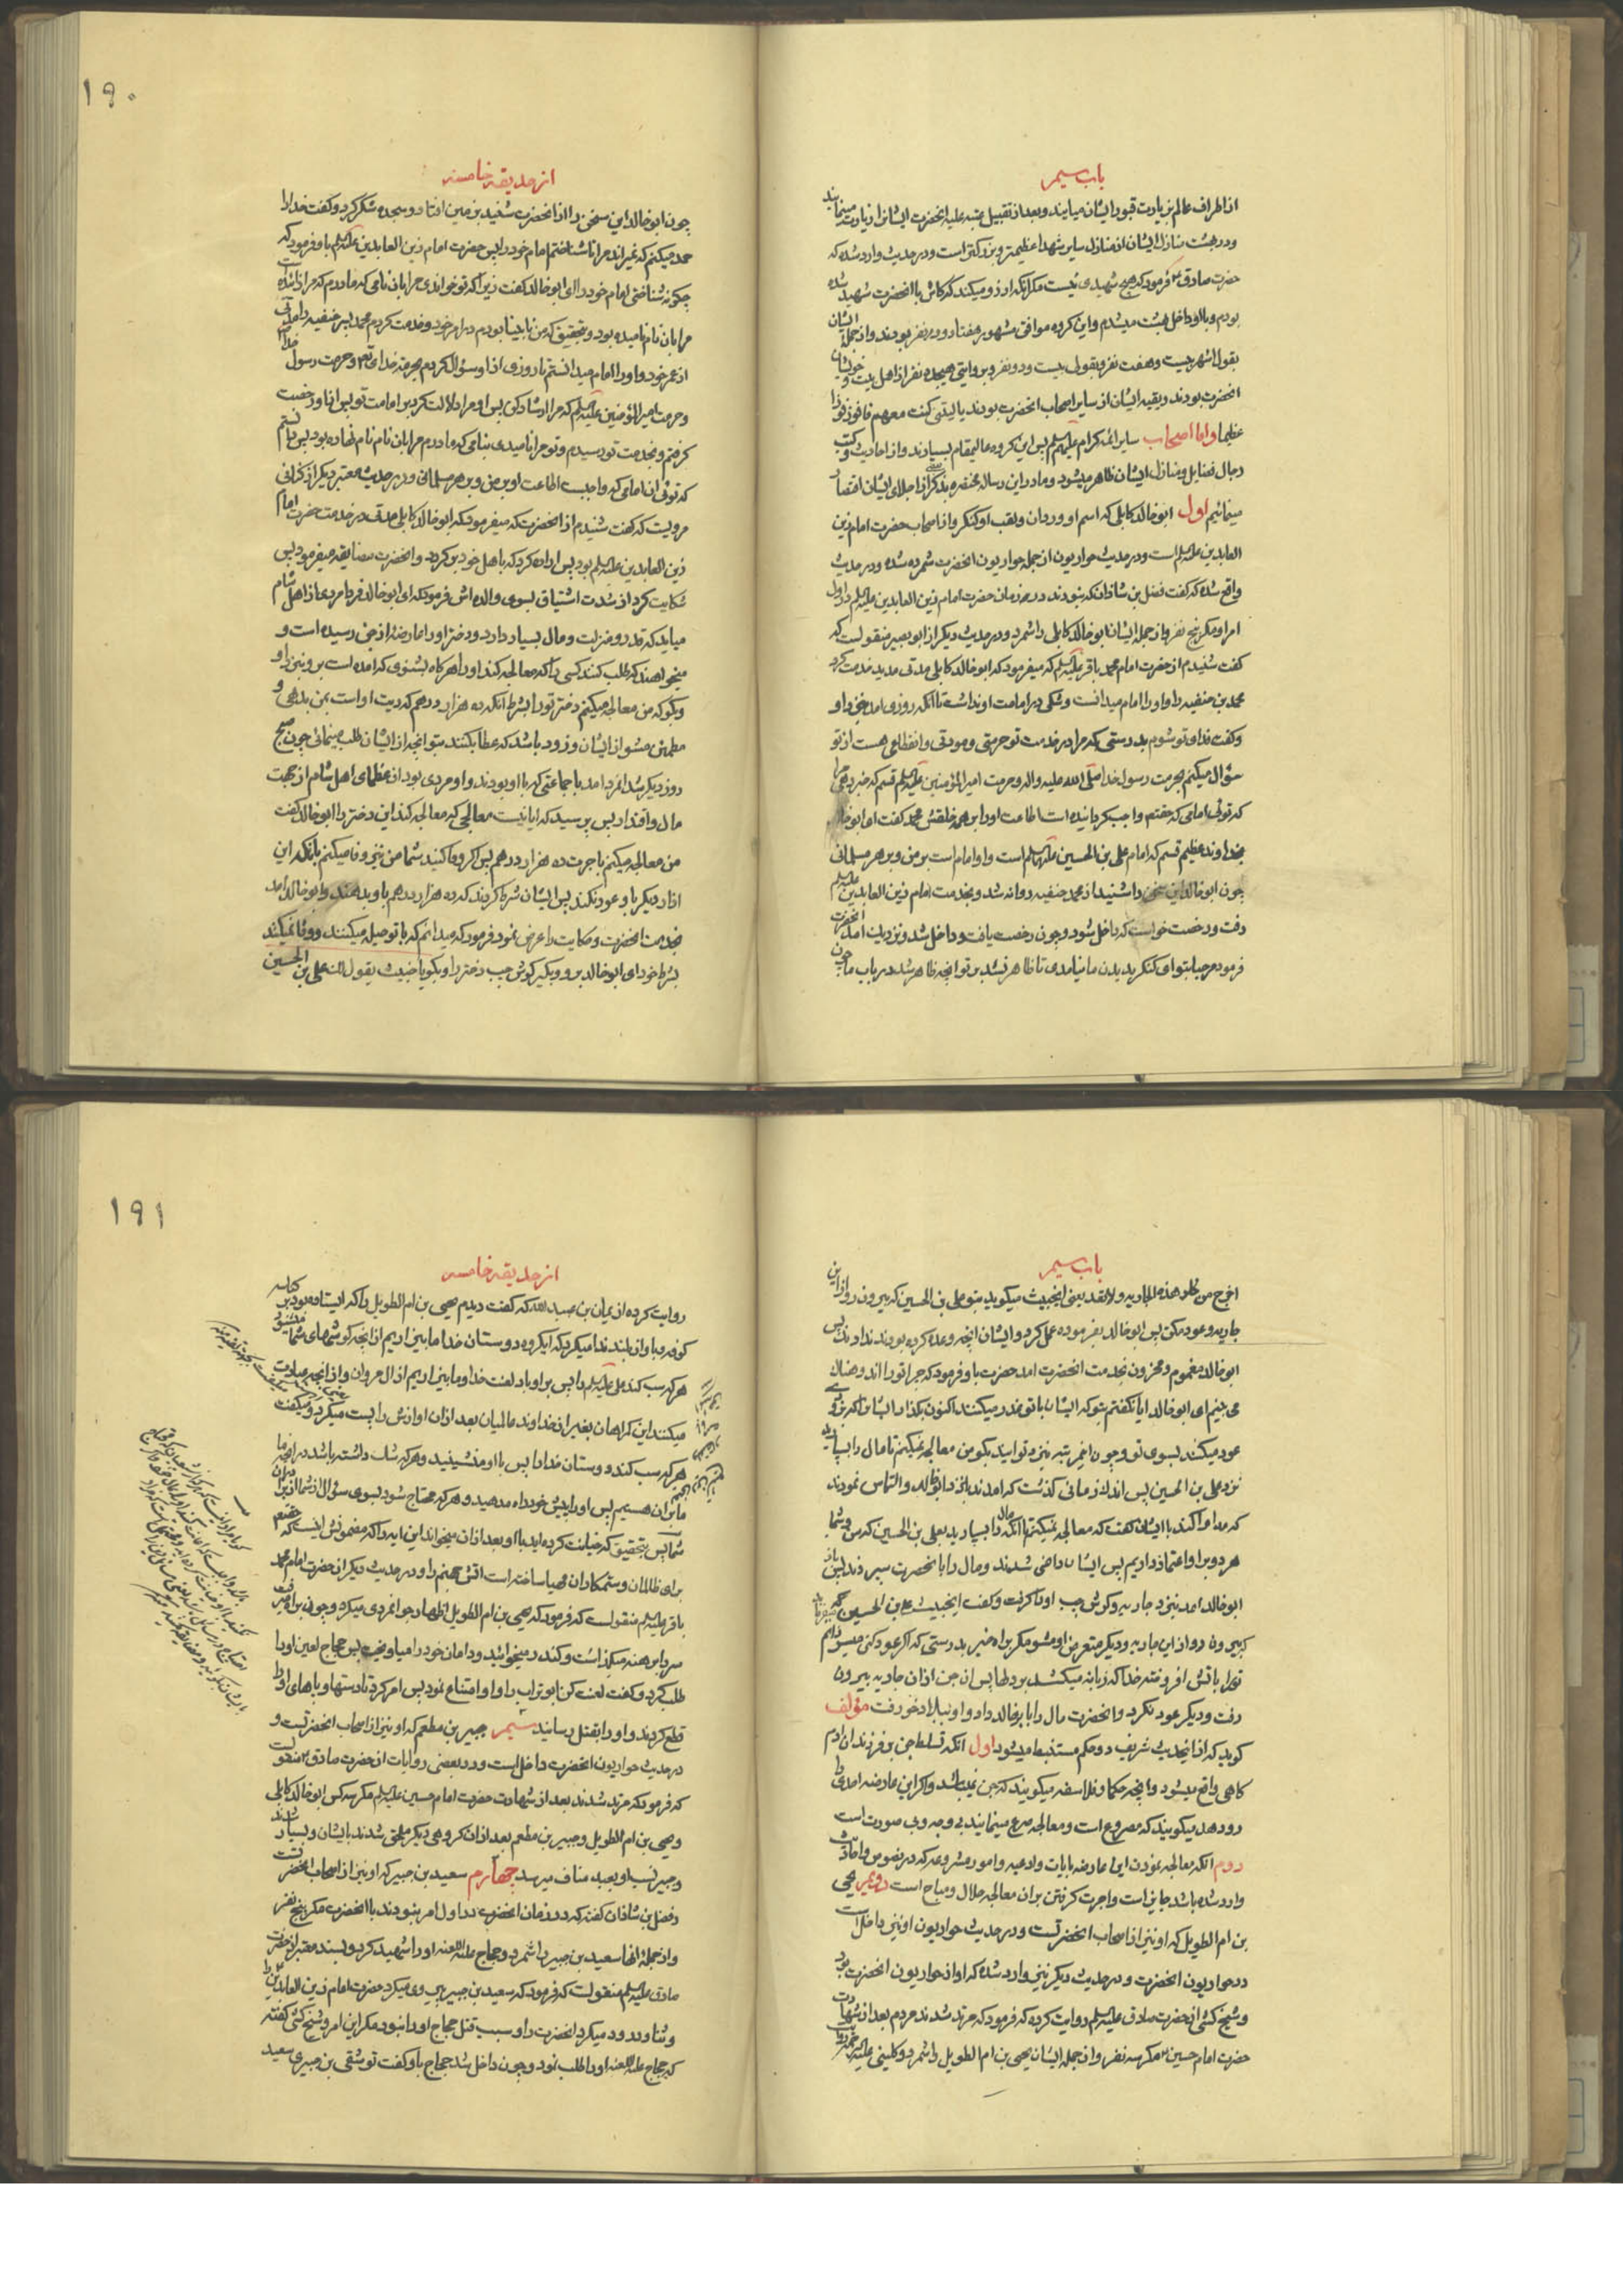 باب سیم
از اطراف عالم بزیارت قبور ایشان میایند و بعد از تقبیل عتبه علیه انحضرت ایشانرا زیارت مینمایند
و در بهشت منازل ایشان از منازل سایر شهدا عظیمتر و بزرگتر است و در حدیث وارد شده که
حضرت صادق ع فرمود که هیچ شهیدی نیست مکر انکه ارزو میکند که کاش با انحضرت شهید شده
بودم و با او داخل بهشت میشدم و این کروه موافق مشهور هفتاد و دو نفر بودند و از جملهٔ ایشان
بقول اشهر بیست و هفت نفر و بقولی بیست و دو نفر و بروایتی هیجده نفر از اهل بیت و خویشان
انحضرت بودند و بقیه ایشان از سایر اصحاب انحضرت بودند یا لیتنی کنت معهم فافوز فوزا
عظیما و اما اصحاب سایر ائمه کرام علیهم السلم پس این کروه عالیمقام بسیارند و از احادیث و کتب
رجال فضایل و منازل ایشان ظاهر میشود و ما در این رساله مختصره بذکر بعضی از اجلای ایشان اقتصار
مینمائیم اول ابو خالد کابلی که اسم او وردان و لقب او کنکر و از اصحاب حضرت امام زین
العابدین علیه السلم است و در حدیث حواریون از جمله حواریون انحضرت شمرده شده و در حدیث
واقع شده که کفت فضل بن شاذان که نبودند در زمان حضرت امام زین العابدین علیه السلم در اول
امر او مکر پنج نفر و از جمله ایشان ابو خالد کابلی را شمرد و در حدیث دیکر از ابو بصیر منقولست که
کفت شنیدم از حضرت امام محمد باقر علیه السلم که میفرمود که ابو خالد کابلی مدتی مدید خدمت کرد
محمد بن حنفیه را و او را امام میدانست و شکی در امامت او نداشت تا انکه روزی امد نزد او
و کفت فدای تو شوم بدرستی که مرا در خدمت تو حرمتی و مودتی و انقطاعی هست از تو
سؤال میکنم بحرمت رسول خدا صلی الله علیه و اله و حرمت امیر المؤمنین علیه السلم قسم که خبر دهی مرا
که توئی امامی که حقتعم واجب کردانیده است اطاعت او را بر همه خلقش محمد کفت ای ابو خالد
بخداوند عظیم قسم که امام علی بن الحسین علیهما السلم است و او امام است بر من و بر هر مسلمانی
چون ابو خالد این سخن را شنید از محمد حنفیه روانه شد و بخدمت امام زین العابدین علیه السلم
رفت و رخصت خواست که داخل شود و چون رخصت یافت و داخل شد و نزدیک امد انحضرت
فرمود مرحبا بتو ای کنکر بدیدن ما نیامدی تا ظاهر نشد بر تو انچه ظاهر شد در باب ما چون
۱۹۰
از حدیقه خامسه
چون ابو خالد این سخن را از انحضرت شنید بزمین افتاد و سجده شکر کرد و کفت خدا را
حمد میکنم که نمیراند مرا تا شناختم امام خود را پس حضرت امام زین العابدین علیه السلم باو فرمود که
چکونه شناختی امام خود را ای ابو خالد کفت زیرا که تو خواندی مرا بان نامی که مادرم که مرا زائیده
مرا بان نام نامیده بود و بتحقیق که من نابینا بودم در امر خود و خدمت کردم محمد پسر حنفیه را مدتی
از عمر خود و او را امام میدانستم تا روزی از او سؤال کردم بحرمت خدای تع و حرمت رسول خدا
و حرمت امیر المؤمنین علیه السلم که مرا ارشاد کن پس او مرا دلالت کرد بر امامت تو پس از او رخصت
کرفتم و بخدمت تو رسیدم و تو مرا نامیدی بنامی که مادرم مرا بان نام نام نهاده بود پس دانستم
که توئی ان امامی که واجبست اطاعت او بر من و بر هر مسلمانی و در حدیث معتبر دیکر از کنانی
مرویست که کفت شنیدم از انحضرت که میفرمود که ابو خالد کابلی مدتی در خدمت حضرت امام
زین العابدین علیه السلم بود پس اراده کرد که باهل خود برکردد و انحضرت مضایقه میفرمود پس
شکایت کرد از شدت اشتیاق بسوی والده اش فرمود که ای ابو خالد فردا مردی از اهل شام
میاید که قدر و منزلت و مال بسیار دارد و دختر او را عارضهٔ از جن رسیده است و
میخواهند که طلب کنند کسی را که معالجه کند او را هرکاه بشنوی که امده است برو بنزد او
و بکو که من معالجه میکنم دختر تو را بشرط انکه ده هزار درهم که دیت او است بمن بدهی و
مطمئن مشو از ایشان و زود باشد که عطا بکنند بتو انچه از ایشان طلب مینمائی چون صبح
روز دیکر شد انمرد امد با جماعتی که با او بودند و او مردی بود از عظمای اهل شام از جهت
مال و اقتدار پس پرسید که ایا نیست معالجی که معالجه کند این دختر را ابو خالد کفت
من معالجه میکنم باجرت ده هزار درهم پس اکر وفا کنید شما من نیز وفا میکنم بانکه این
ازار دیکر باو عود نکند پس ایشان شرط کردند که ده هزار درهم باو بدهند و ابو خالد امد
بخدمت انحضرت و حکایت را عرض نمود فرمود که میدانم که با تو حیله میکنند و وفا نمیکنند
بشرط خود ای ابو خالد برو و بکیر کوش چپ دختر را و بکو یا خبیث یقول لک علی بن الحسین
باب سیم
اخرج من هذه الجاریه و لا تعد یعنی ایخبیث میکوید بتو علی بن الحسین که بیرون رو از این
جاریه و عود مکن پس ابو خالد بفرموده عمل کرد و ایشان انچه وعده کرده بودند ندادند پس
ابو خالد مغموم و محزون بخدمت انحضرت امد حضرت باو فرمود که چرا تو را اندوهناک
می بینم ای ابو خالد ایا نکفتم بتو که ایشان با تو غدر میکنند اکنون بکذار ایشان را که بزودی
عود میکنند بسوی تو و چون اینمرتبه بنزد تو ایند بکو من معالجه نمیکنم تا مال را بسپارید
نزد علی بن الحسین پس اندک زمانی کذشت که امدند بنزد ابو خالد و التماس نمودند
که مداوا کند با ایشان کفت که معالجه نمیکنم تا انکه مال را بسپارید بعلی بن الحسین که من و شما
هر دو بر او اعتماد داریم پس ایشان راضی شدند و مال را بانحضرت سپردند پس باز
ابو خالد امد بنزد جاریه و کوش چپ او را کرفت و کفت ایخبیث علی بن الحسین میفرماید
که بیرون رو از این جاریه و دیکر متعرض او مشو مکر براه خیر بدرستی که اکر عود کنی میسوزانم
تو را باتش افروخته خدا که زبانه میکشد بر دلها پس ان جن از ان جاریه بیرون
رفت و دیکر عود نکرد و انحضرت مال را بابو خالد داد و او ببلاد خود رفت مؤلف
کوید که از اینحدیث شریف دو حکم مستنبط میشود اول انکه تسلط جن بر فرزندان ادم
کاهی واقع میشود و انچه حکما و فلاسفه میکویند که جن نمیباشد و اکر این عارضه احدی را
رو دهد میکویند که مصروع است و معالجه صرع مینمایند بی وجه و بی صورت است
دوم انکه معالجه نمودن این عارضه بایات و ادعیه و امور مشروعه که در نصوص و احادیث
وارد شده باشد جایز است و اجرت کرفتن بر ان معالجه حلال و مباح است دویم یحیی
بن ام الطویل که او نیز از اصحاب انحضرتست و در حدیث حواریون او نیز داخل است
در حواریون انحضرت و در حدیث دیکر نیز وارد شده که او از حواریون انحضرت بود
و شیخ کشی از حضرت صادق علیه السلم روایت کرده که فرمود که مرتد شدند مردم بعد از شهادت
حضرت امام حسین ع مکر سه نفر و از جمله ایشان یحیی بن ام الطویل را شمرد و کلینی علیه الرحمه
۱۹۱
از حدیقه خامسه
روایت کرده از یمان بن عبید الله که کفت دیدم یحیی بن ام الطویل را که ایستاده بود در کناسه
کوفه و باواز بلند ندا میکرد که ایکروه دوستان خدا ما بیزاریم از انچه کوشهای شما میشنود
هر که سب کند علی علیه السلم را پس بر او باد لعنت خدا و ما بیزاریم از ال مروان و از انچه عبادت
میکنند این کمراهان بغیر از خداوند عالمیان بعد از ان اوازش را پست میکرد و میکفت
هر که سب کند دوستان خدا را پس با او منشینید و هر که شک داشته باشد در انچه ما
ما بر ان هستیم پس او را پیش خود راه مدهید و هر که محتاج شود بسوی سؤال از شما از برادران
شما پس بتحقیق که خیانت کرده اید با او بعد از ان میخواند این ایه را که مضمونش اینست که حقتعم
برای ظالمان و ستمکاران مهیا ساخته است اتش جهنم را و در حدیث دیکر از حضرت امام محمد
باقر علیه السلم منقولست که فرمود که یحیی بن ام الطویل اظهار جوانمردی میکرد و چون براه میرفت
طلب کرد و کفت لعنت کن ابو تراب را و او امتناع نمود پس امر کرد تا دستها و پاهای او را
قطع کردند و او را بقتل رسانید سیم جبیر بن مطعم که او نیز از اصحاب انحضرتست و
در حدیث حواریون انحضرت داخل است و در بعضی روایات از حضرت صادق ع منقولست
که فرمود که مرتد شدند بعد از شهادت حضرت امام حسین علیه السلم مکر سه کس ابو خالد کابلی
و یحیی بن ام الطویل و جبیر بن مطعم بعد از ان کروهی دیکر ملحق شدند بایشان و بسیار شدند
و جبیر نسب او بعبد مناف میرسد چهارم سعید بن جبیر که او نیز از اصحاب انحضرتست
و فضل بن شاذان کفته که در زمان انحضرت در اول امر نبودند با انحضرت مکر پنج نفر
و از جمله انها سعید بن جبیر را شمرد و حجاج علیه اللعنه او را شهید کرد و بسند معتبر از حضرت
صادق علیه السلم منقولست که فرمود که سعید بن جبیر پیروی میکرد حضرت امام زین العابدین را
و ثنا و درود میکرد انحضرت را و سبب قتل حجاج او را نبود مکر این امر و شیخ کشی کفته
که حجاج علیه اللعنه او را طلب نمود و چون داخل شد حجاج باو کفت تو شقی بن کسیری سعید